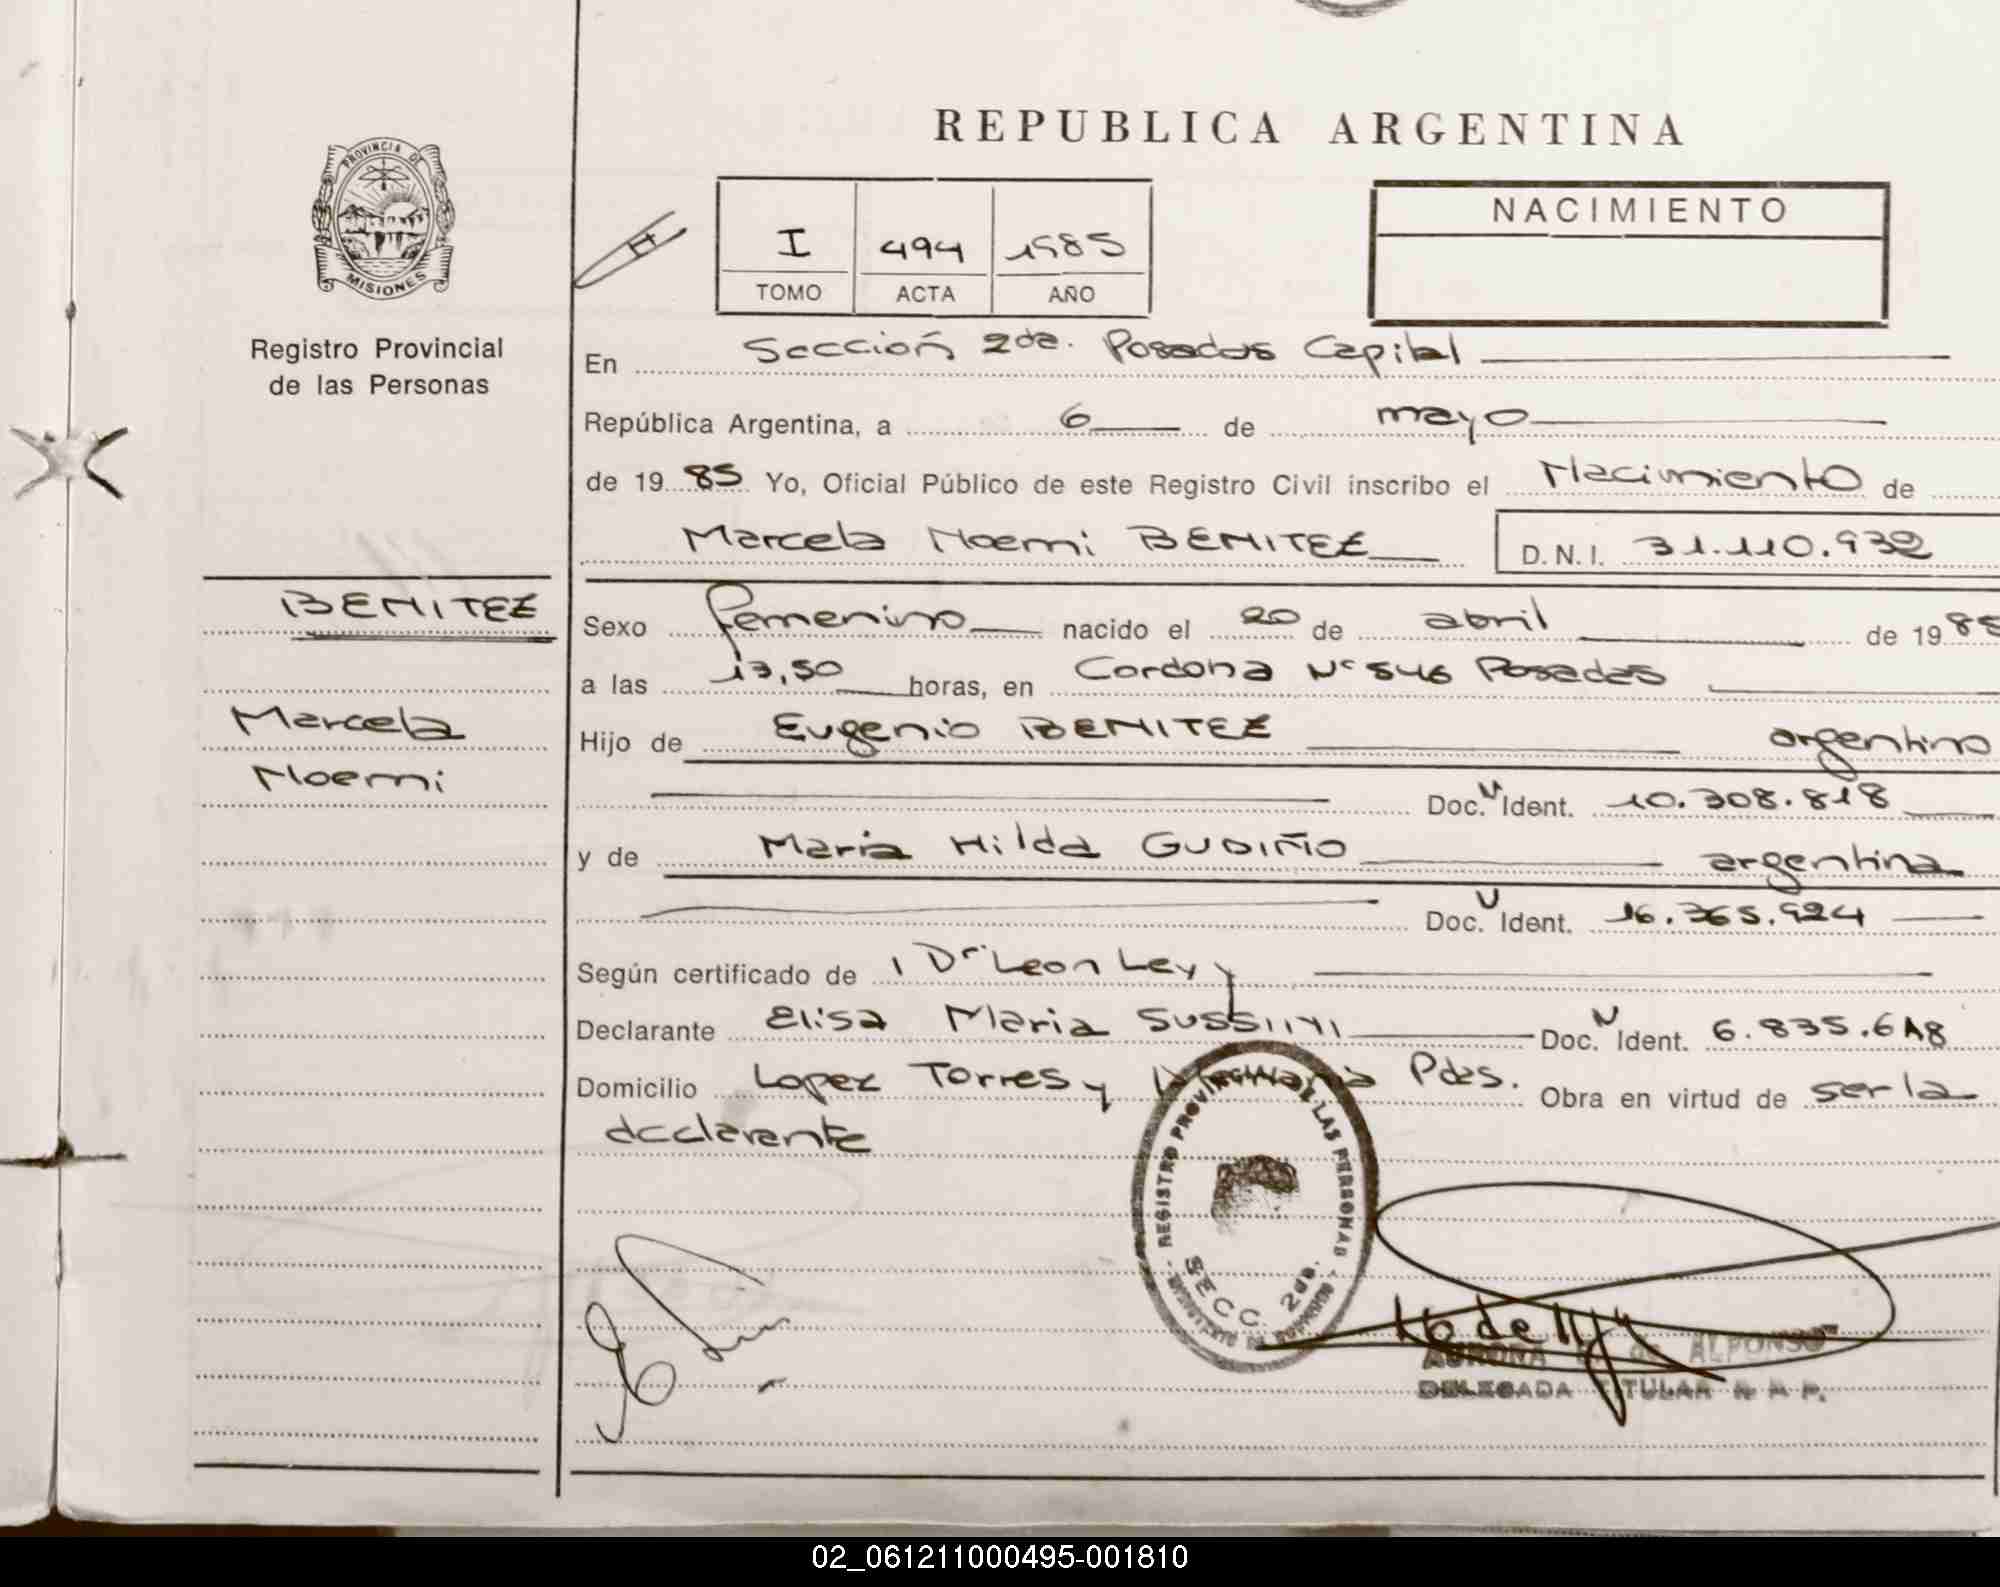 REPUBLICA ARGENTINA
PROVINCIA DE
MISIONES
Registro Provincial
de las Personas
I 494 1985
TOMO ACTA AÑO
NACIMIENTO
En Sección 2da. Posadas Capital
República Argentina, a 6 de mayo
de 1985 Yo, Oficial Público de este Registro Civil inscribo el Nacimiento de
Marcela Noemi BENITEZ D.N.I. 31.110.932
BENITEZ
Marcela
Noemi
Sexo femenino nacido el 20 de abril de 1985
a las 13,50 horas, en Cordoba Nº 546 Posadas
Hijo de Eugenio BENITEZ argentino
Doc. N Ident. 10.308.818
y de Maria Hilda GUDIÑO argentina
Doc. Ident. 16.365.924
Según certificado de Dr Leon Levy
Declarante Elisa Maria SUSSINI Doc. N Ident. 6.835.618
Domicilio Lopez Torres y Pdas. Obra en virtud de ser la
declarante
REGISTRO PROVINCIAL DE LAS PERSONAS
SECC. 2da.
AURORA de ALFONSO
DELEGADA TITULAR R. P. P.
02_061211000495-001810